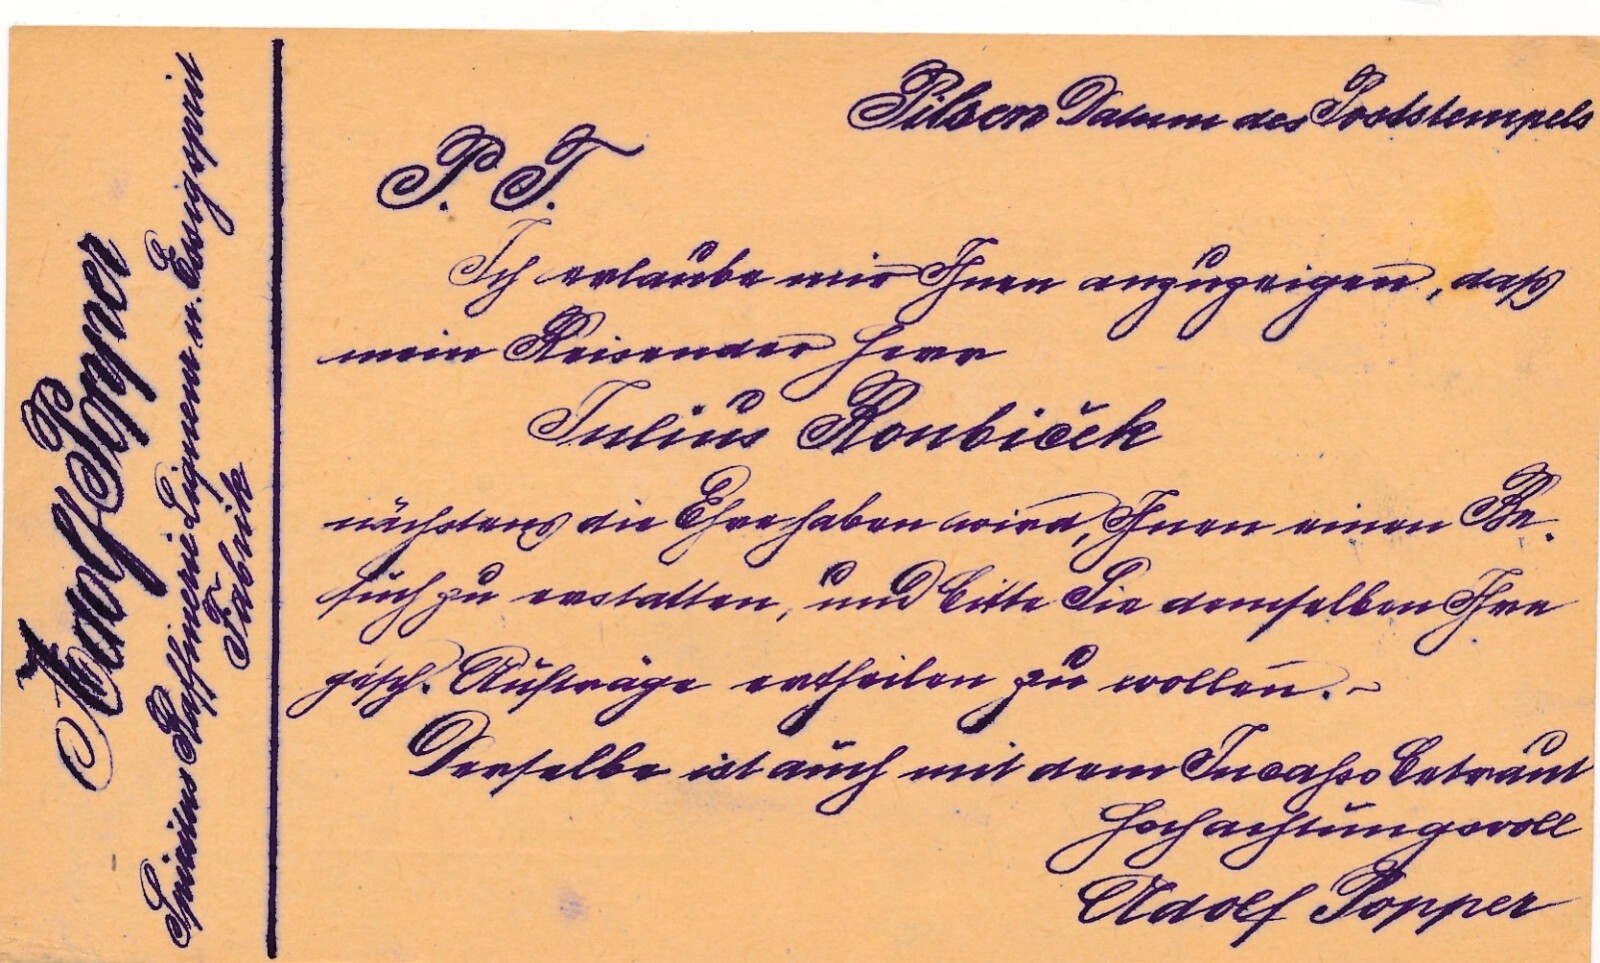 Adolf Popper
Spiritus Raffinerie Liqueur u. Essigsprit
Fabrik
Pilsen Datum des Poststempels
P. T.
Ich erlaube mir Ihnen anzuzeigen, daß
mein Reisender Herr
Julius Roubiček
nächstens die Ehre haben wird, Ihnen einen Be-
such zu erstatten, und bitte Sie demselben Ihre
gesch. Aufträge ertheilen zu wollen. –
Derselbe ist auch mit dem Incasso betraut
Hochachtungsvoll
Adolf Popper